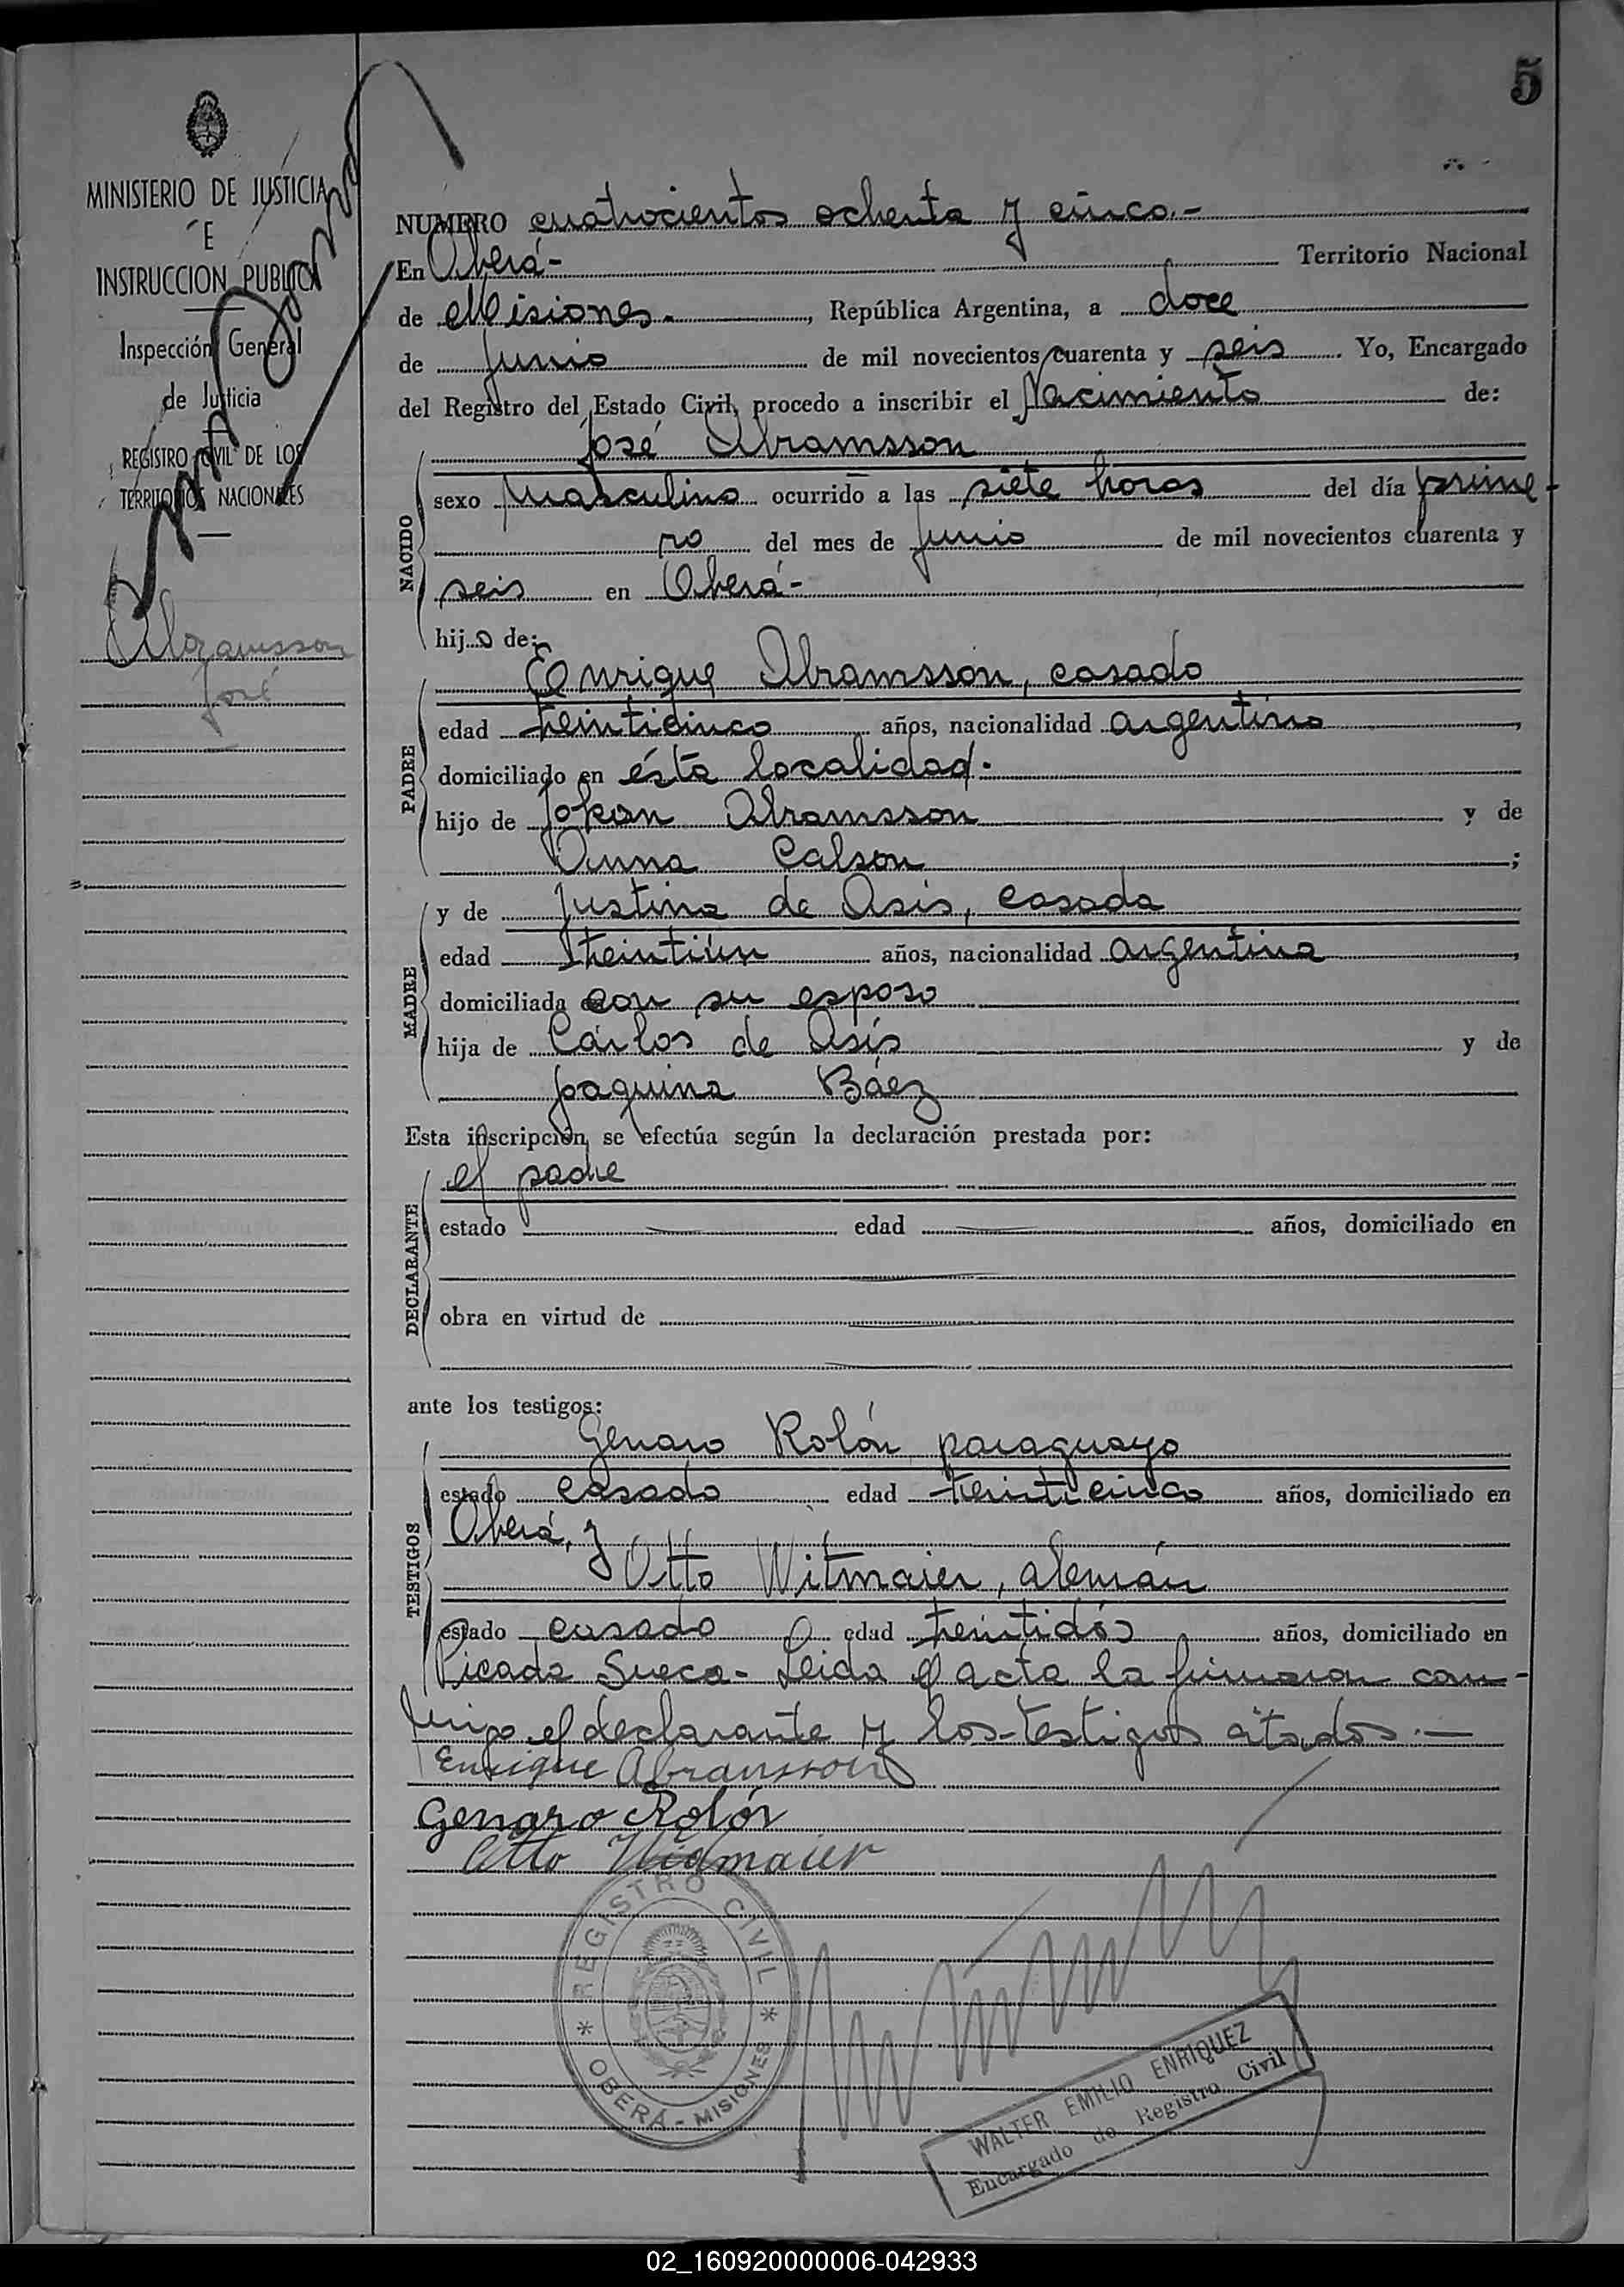 5
MINISTERIO DE JUSTICIA
E
INSTRUCCION PUBLICA
Inspección General
de Justicia
REGISTRO CIVIL DE LOS
TERRITORIOS NACIONALES
Abramsson
José
NUMERO cuatrocientos ochenta y cinco.-
En Oberá- Territorio Nacional
de Misiones.-, República Argentina, a doce
de Junio de mil novecientos cuarenta y seis. Yo, Encargado
del Registro del Estado Civil, procedo a inscribir el Nacimiento de:
José Abramsson
NACIDO
sexo Masculino ocurrido a las siete horas del día prime-
ro del mes de Junio de mil novecientos cuarenta y
seis en Oberá-
hijo de:
PADRE
Enrique Abramsson, casado
edad treinticinco años, nacionalidad argentino,
domiciliado en ésta localidad.
hijo de Johan Abramsson y de
Anna Calson;
MADRE
y de Justina de Asis, casada
edad treintiún años, nacionalidad argentina,
domiciliada con su esposo
hija de Cárlos de Asís y de
Joaquina Báez
Esta inscripción se efectúa según la declaración prestada por:
DECLARANTE
el padre
estado edad años, domiciliado en
obra en virtud de
ante los testigos:
TESTIGOS
Genaro Rolón paraguayo
estado casado edad treinticinco años, domiciliado en
Oberá, y
Otto Witmaier, alemán
estado casado edad treintidós años, domiciliado en
Picada Sueca- Leida el acta la firmaron con-
migo el declarante y los testigos citados.-
Enrique Abramsson
Genaro Rolón
Otto Widmaier
REGISTRO CIVIL
* OBERÁ - MISIONES *
WALTER EMILIO ENRIQUEZ
Encargado de Registro Civil
02_160920000006-042933